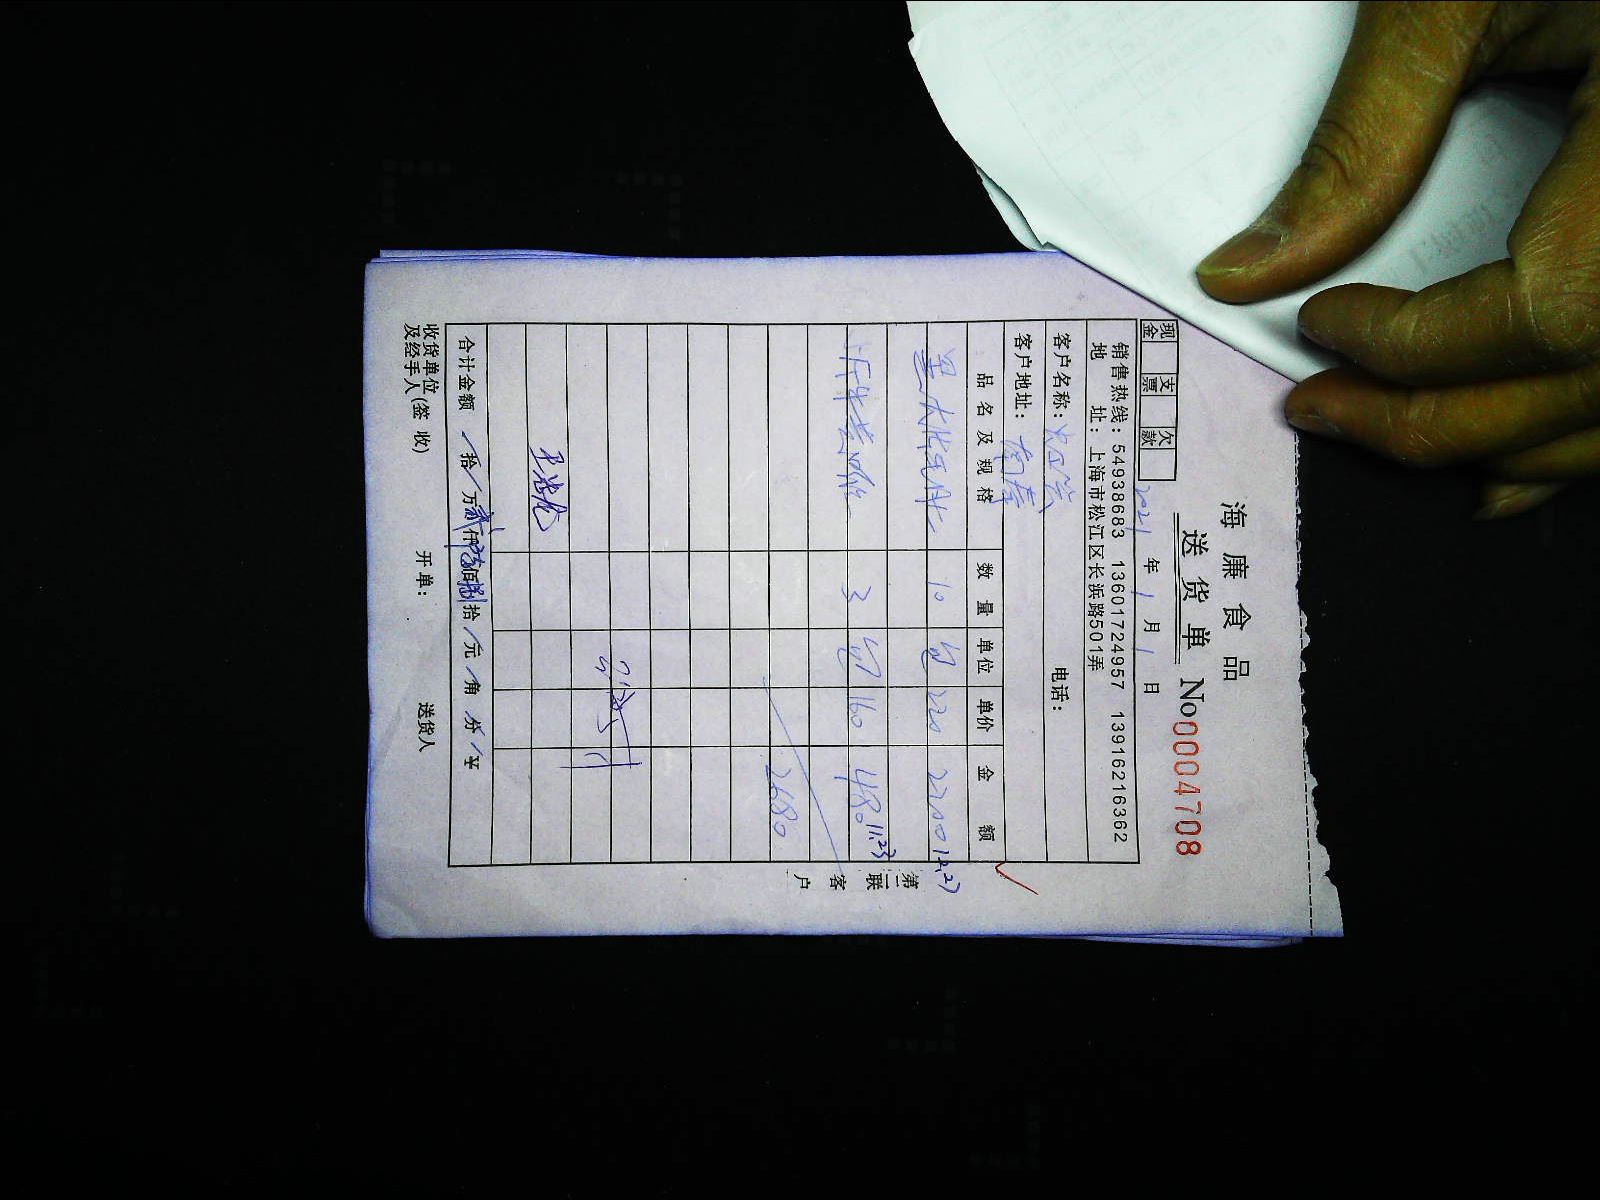 海廉食品
送货单 No 00004708
现金 支票 欠款 2021 年 1 月 1 日
销售热线：54938683 13601724957 13916216362
地 址：上海市松江区长浜路501弄
客户名称： 电话：
客户地址：
品名及规格 数量 单位 单价 金额
10 220 2200 12.27
3 160 480 11.23
2680
合计金额 拾 万 贰 仟 陆 佰 捌 拾 元 角 分 ￥
收货单位及经手人(签收) 开单： 送货人
第二联 客户